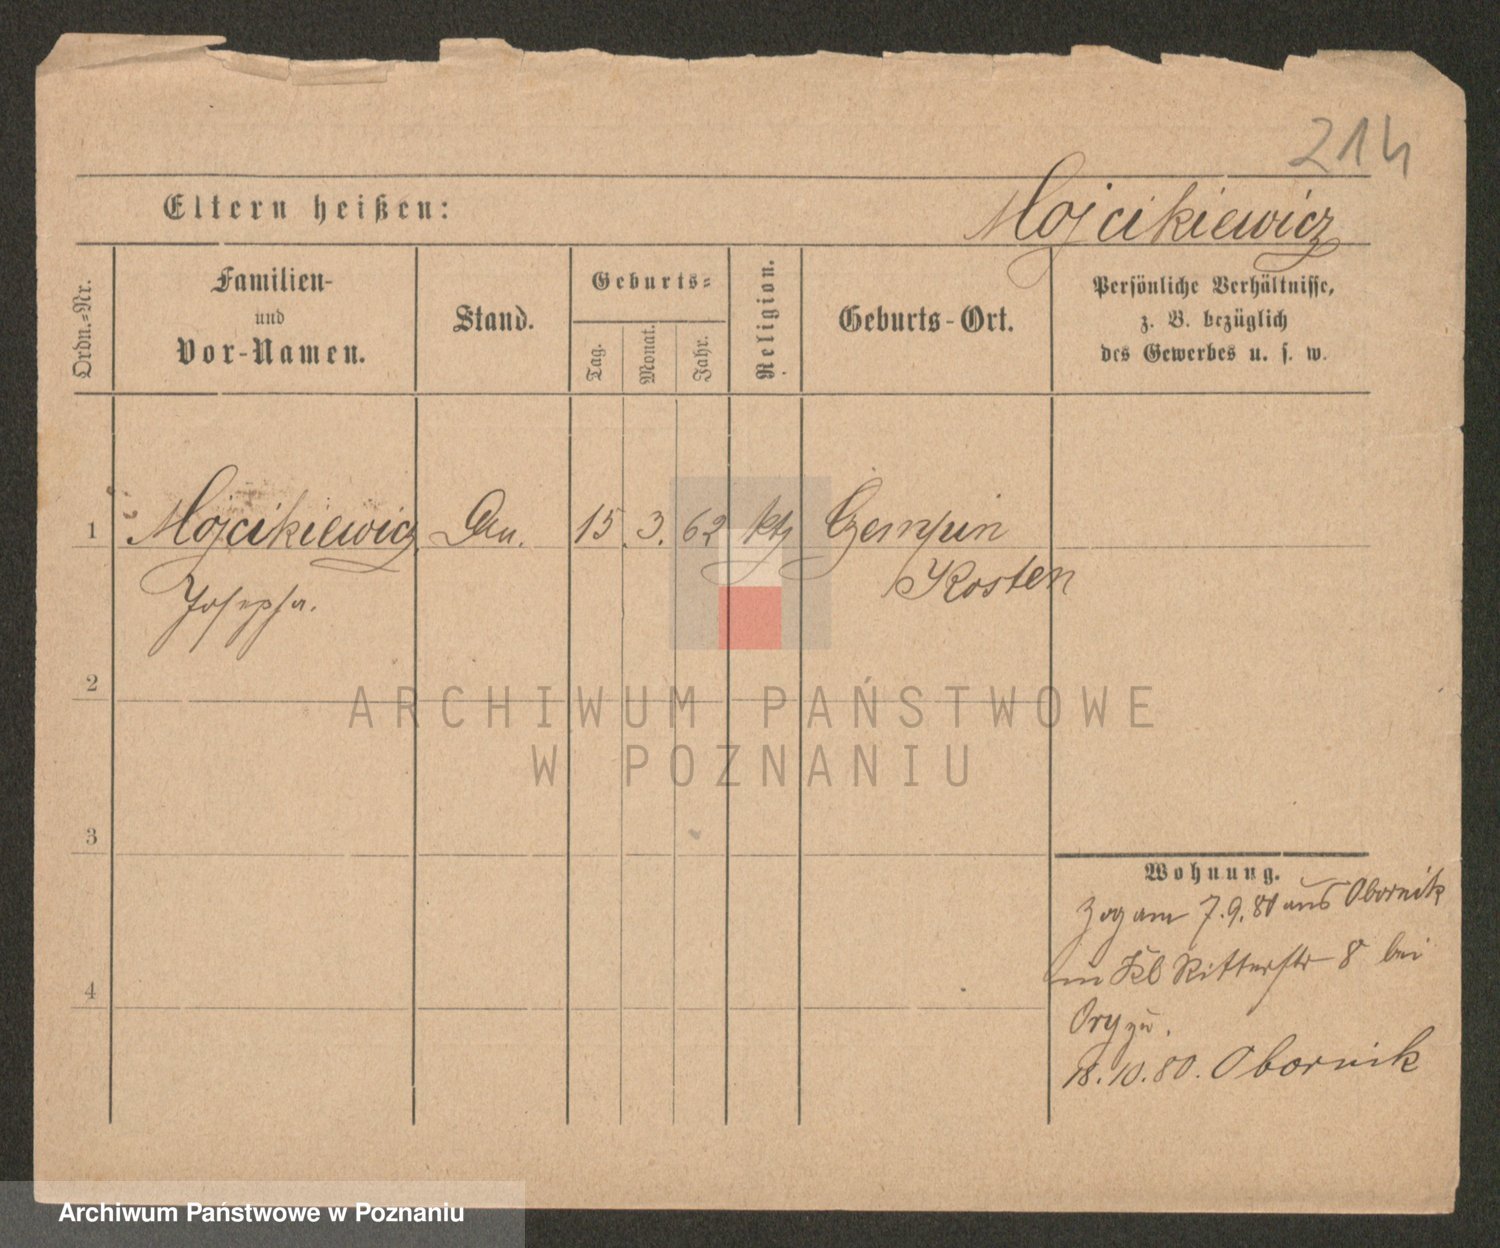 214
Eltern heißen:
Mojcikiewicz
Ordn.-Nr.
Familien-
und
Vor-Namen.
Stand.
Geburts-
Tag.
Monat.
Jahr.
Religion.
Geburts-Ort.
Persönliche Verhältnisse,
z. B. bezüglich
des Gewerbes u. s. w.
1 Mojcikiewicz 15. 3. 62 kth Czempin
Josepha. Kosten
2
ARCHIWUM PAŃSTWOWE
W POZNANIU
3
Wohnung.
Zog am 7.9.80 aus Obornik
in Kl Ritterstr 8 bei
4
18.10.80. Obornik
Archiwum Państwowe w Poznaniu